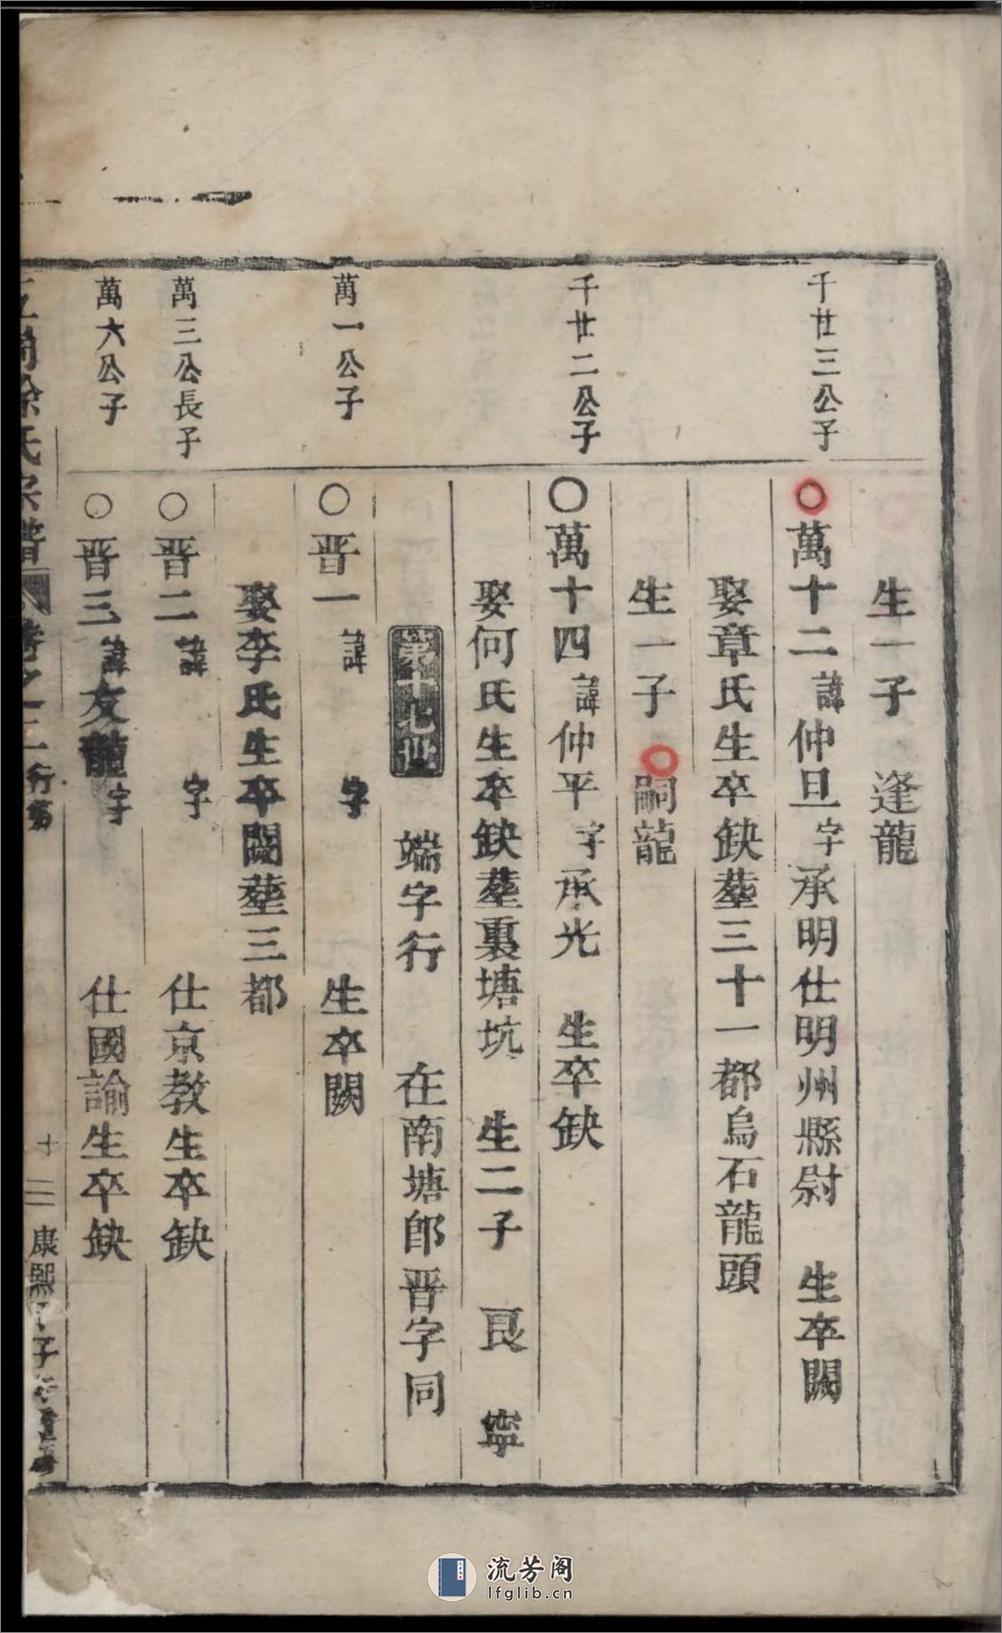 生一子 逢龍
千廿三公子
○萬十二諱仲旦字承明仕明州縣尉 生卒闕
娶章氏生卒缺塟三十一都烏石龍頭
生一子 嗣龍
千廿二公子
○萬十四諱仲平字承光 生卒缺
娶何氏生卒缺塟裏塘坑 生二子 艮 寧
第十七世 端字行 在南塘郎晋字同
萬一公子
○晋一諱 字 生卒闕
娶李氏生卒闕塟三都
萬三公長子
○晋二諱 字 仕京教生卒缺
萬六公子
○晋三諱友龍字 仕國諭生卒缺
徐氏宗譜 卷之二行第 十二 康熙 子
流芳阁
lfglib.cn